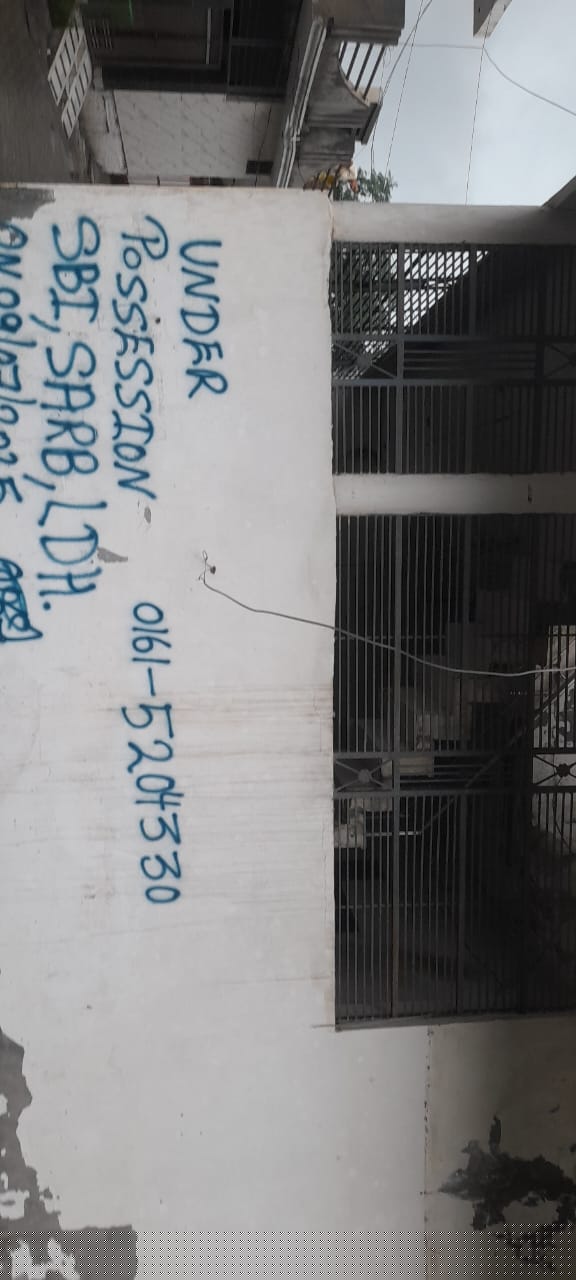 UNDER
POSSESSION
SBI, SARB, LDH.
ON 09/07/2025
0161-5204330